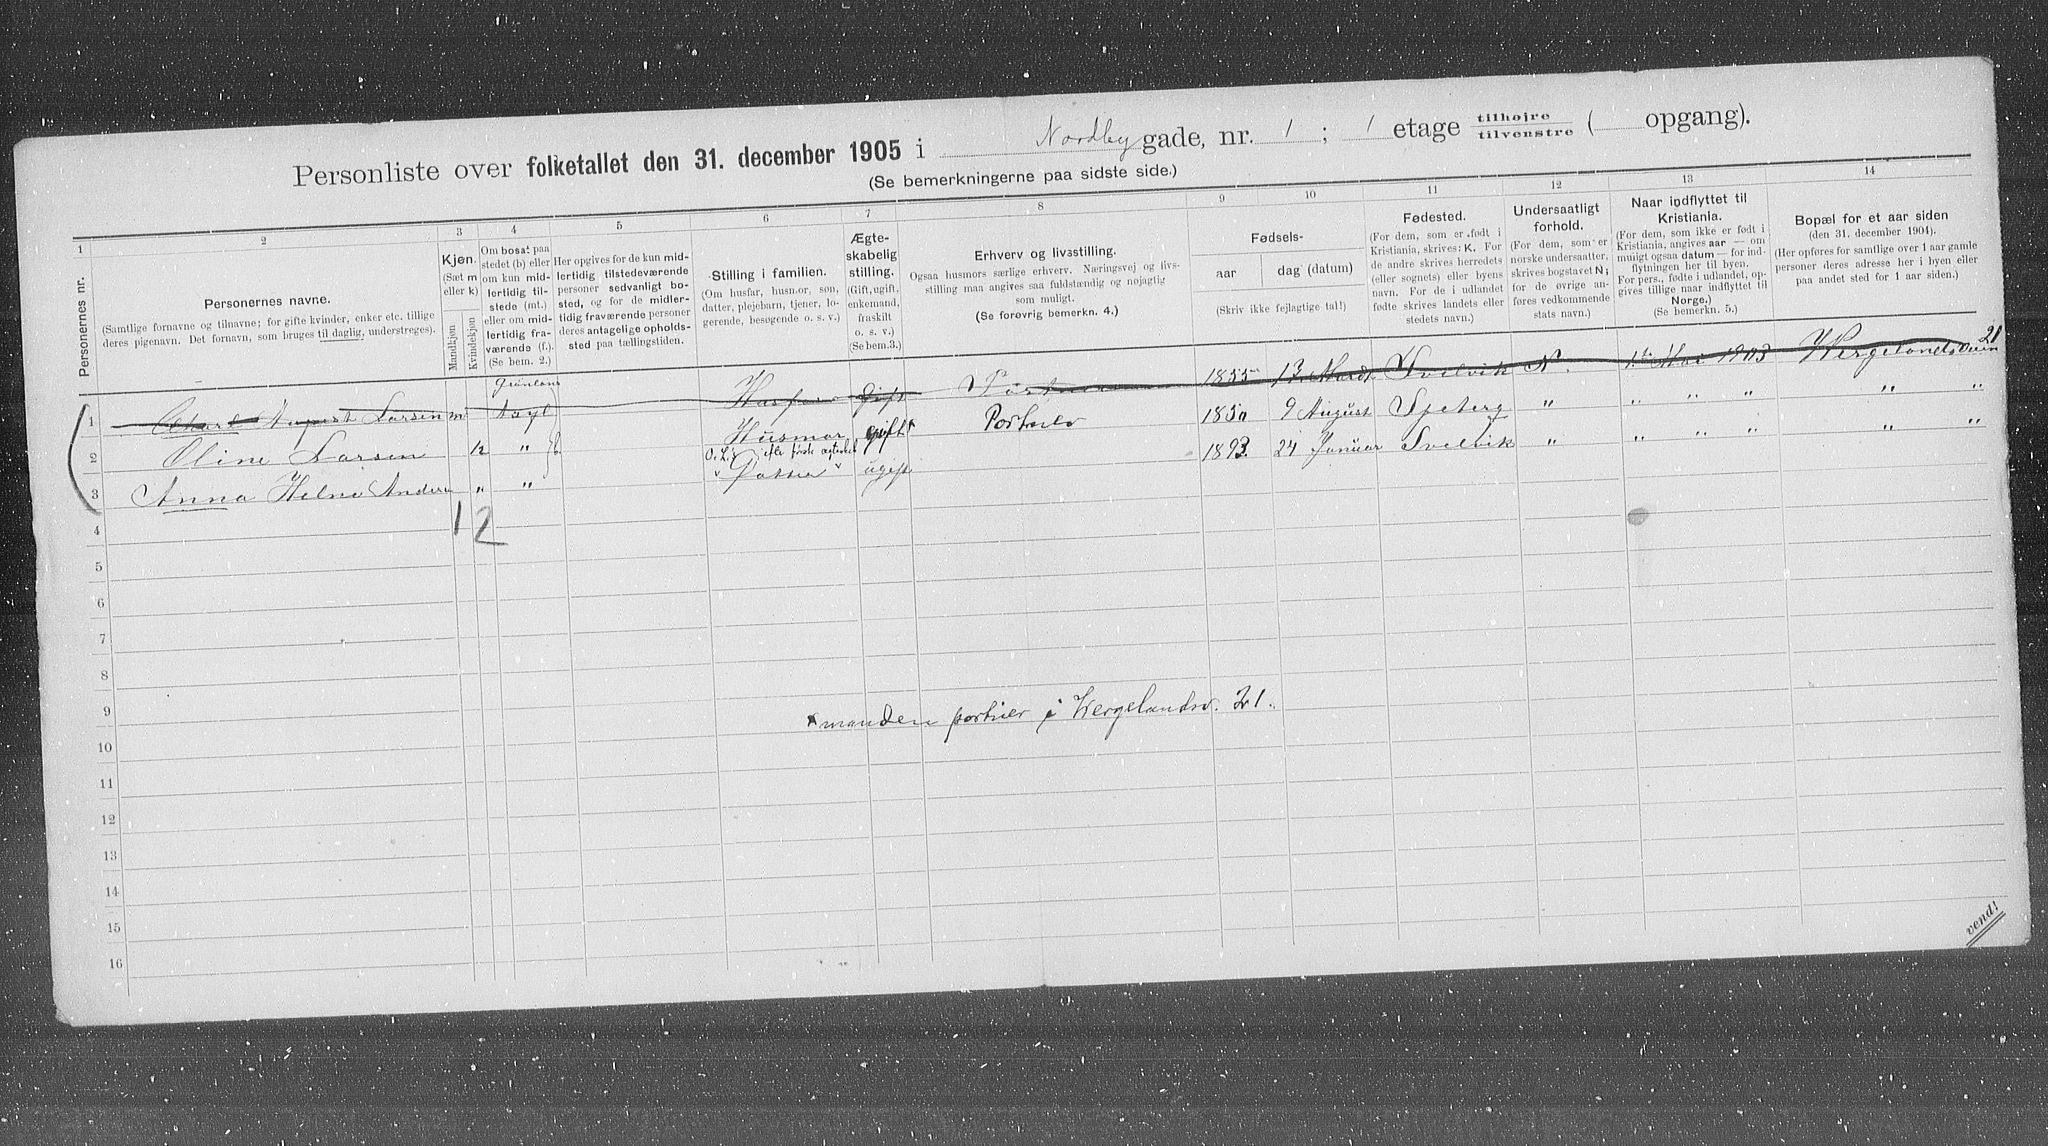 Personliste over folketallet den 31. december 1905 i Nordby gade, nr. 1 ; 1 etage tilhøjre tilvenstre ( opgang).
(Se bemerkningerne paa sidste side.)
1 2 3 4 5 6 7 8 9 10 11 12 13 14
Personernes nr.
Personernes navne.
(Samtlige fornavne og tilnavne; for gifte kvinder, enker etc. tillige
deres pigenavn. Det fornavn, som bruges til daglig, understreges).
Kjøn.
(Sæt m
eller k)
Mandkjøn
Kvindekjøn
Om bosat paa
stedet (b) eller
om kun mid-
lertidig til-
stede (mt.)
eller om mid-
lertidig fra-
værende (f.).
(Se bem. 2.)
Her opgives for de kun mid-
lertidig tilstedeværende
personer sedvanligt bo-
sted, og for de midler-
tidig fraværende personer
deres antagelige opholds-
sted paa tællingstiden.
Stilling i familien.
(Om husfar, husmor, søn,
datter, plejebarn, tjener, lo-
gerende, besøgende o. s. v.)
Ægte-
skabelig
stilling.
(Gift, ugift,
enkemand,
fraskilt
o. s. v.)
(Se bem.3.)
Erhverv og livsstilling.
Ogsaa husmors særlige erhverv. Næringsvej og livs-
stilling maa angives saa fuldstændig og nøjagtig
som muligt.
(Se forøvrig bemerkn. 4.)
Fødsels-
aar dag (datum)
(Skriv ikke fejlagtige tal!)
Fødested.
(For dem, som er født i
Kristiania, skrives: K. For
de andre skrives herredets
(eller sognets) eller byens
navn. For de i udlandet
fødte skrives landets eller
stedets navn.)
Undersaatligt
forhold.
(For dem, som er
norske undersaatter,
skrives bogstavet N;
for de øvrige an-
føres vedkommende
stats navn.)
Naar indflyttet til
Kristiania.
(For dem, som ikke er født i
Kristiania, angives aar — om
muligt ogsaa datum — for ind-
flytningen her til byen.
For pers., fødte i udlandet, op-
gives tillige naar indflyttet til
Norge.)
(Se bemerkn. 5.)
Bopæl for et aar siden
(den 31. december 1904).
(Her opføres for samtlige over 1 aar gamle
personer deres adresse her i byen eller
paa andet sted for 1 aar siden.)
1 August Larsen m Grønlands Asyl Husfar Gift 1855 13 Svelvik N. 1ste Mai 1903 Wergelandsveien 21
2 Oline Larsen b. Husmor gift* 1850 9 August " " " " " "
3 Anna Andersen " " Datter ugift 1893. 24 Januar Svelvik " " " " " "
1 2
4
5
6
7
8
9
*manden portier i Wergelandsv. 21.
10
11
12
13
14
15
16
vend!